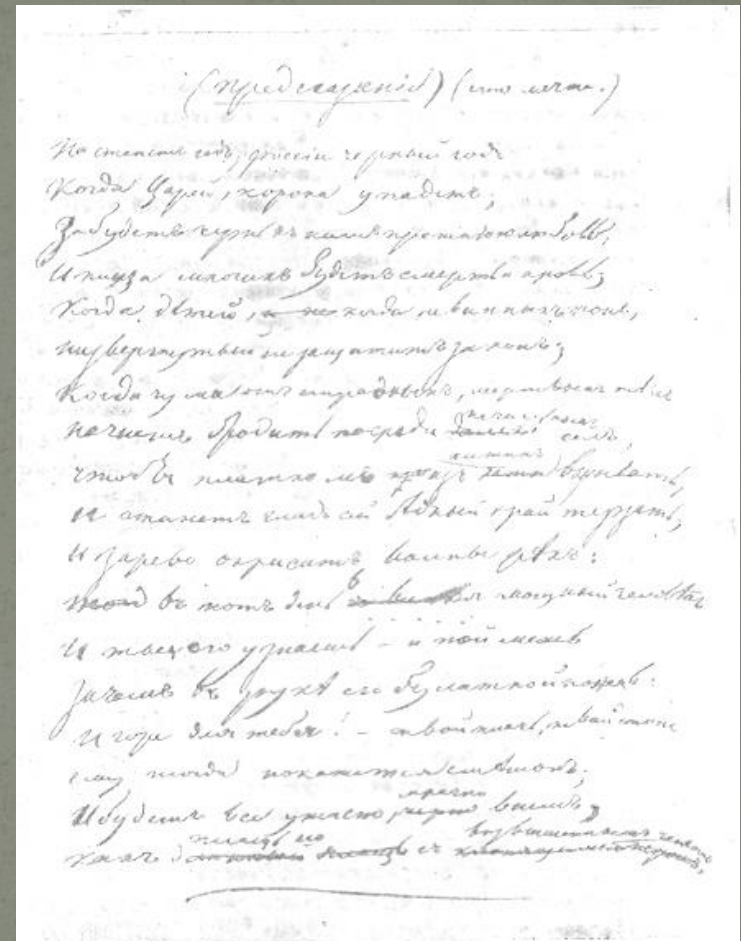 (предсказаніе) (это мечта.)
Настанетъ годъ, россіи черный годъ
Когда Царей корона упадетъ;
Забудетъ чернь къ нимъ прежнюю любовь,
И пища многихъ будетъ смерть и кровь;
Когда дѣтей, когда невинныхъ женъ,
низвергнутый не защититъ законъ;
Когда чума отъ смрадныхъ, мертвыхъ тѣлъ
начнетъ бродить печальныхъ селъ,
чтобы платкомъ изъ хижинъ вызывать,
И станетъ гладъ сей бѣдный край терзать,
И зарево окраситъ волны рѣкъ:
въ тотъ день мощный человѣкъ
И ты его узнаешь – и поймешь
Зачемъ въ рукѣ его булатной ножъ:
И горе для тебя! – твой плачь, твой стонъ
ему тогда покажется смѣшонъ;
И будетъ все ужасно, мрачно въ немъ,
какъ плащъ его съ возвышеннымъ челомъ.